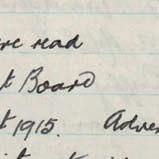 re read
t Board
t 1915. Adver